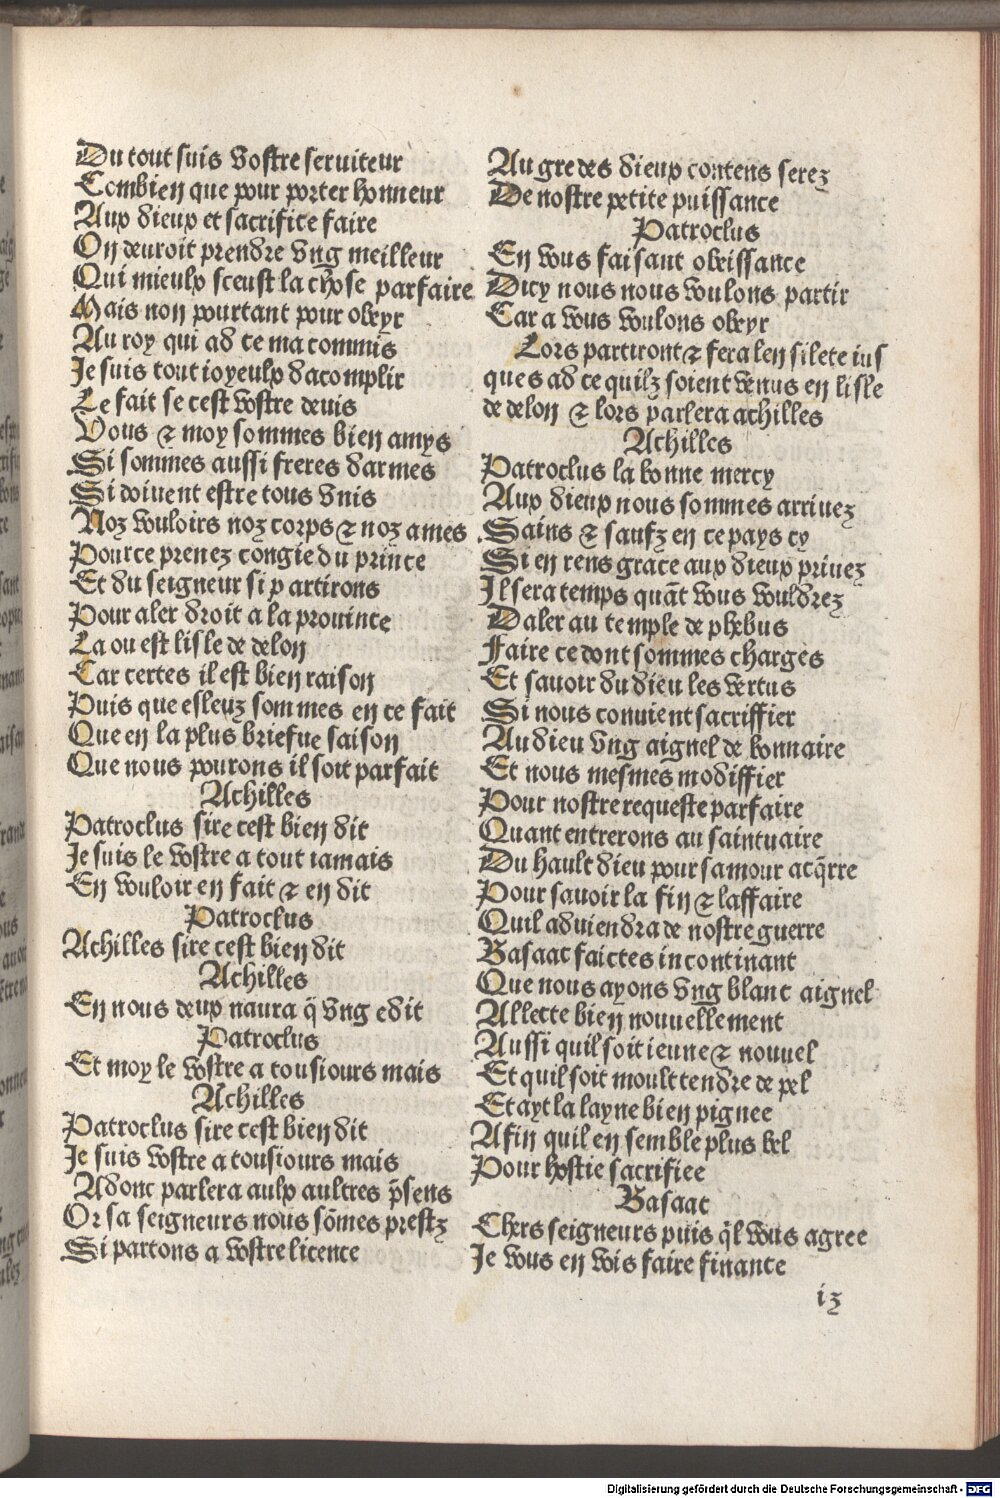 Du tout suis vostre seruiteur
Combien que pour porter honneur
Aux dieux et sacrifice faire
On deuroit prendre vng meilleur
Qui mieulx sceust la chose parfaire
Mais non pourtant pour obeyr
Au roy qui ad ce ma commis
Je suis tout ioyeulx dacomplir
Le fait se cest vostre deuis
Vous ⁊ moy sommes bien amys
Si sommes aussi freres darmes
Si doiuent estre tous vnis
Noz vouloirs noz corps ⁊ noz ames
Pource prenez congie du prince
Et du seigneur si partirons
Pour aler droit a la prouince
La ou est lisle de delon
Car certes il est bien raison
Puis que esleuz sommes en ce fait
Que en la plus briefue saison
Que nous pourons il soit parfait
Achilles
Patroclus sire cest bien dit
Je suis le vostre a tout iamais
En vouloir en fait ⁊ en dit
Patroclus
Achilles sire cest bien dit
Achilles
En nous deux naura q̃ vng edit
Patroclus
Et moy le vostre a tousiours mais
Achilles
Patroclus sire cest bien dit
Je suis vostre a tousiours mais
Adonc parlera aulx aultres p̃sens
Or sa seigneurs nous sõmes prestz
Si partons a vostre licence
Au gre des dieux contens serez
De nostre petite puissance
Patroclus
En vous faisant obeissance
Dicy nous nous voulons partir
Car a vous voulons obeyr
Lors partiront ⁊ fera len silete ius
ques ad ce quilz soient venus en lisle
de delon ⁊ lors parlera achilles
Achilles
Patroclus la bonne mercy
Aux dieux nous sommes arriuez
Sains ⁊ saufz en ce pays cy
Si en rens grace aux dieux priuez
Il sera temps quãt vous vouldrez
Daler au temple de phebus
Faire ce dont sommes charges
Et sauoir du dieu les vertus
Si nous conuient sacriffier
Au dieu vng aignel de bonnaire
Et nous mesmes modiffier
Pour nostre requeste parfaire
Quant entrerons au saintuaire
Du hault dieu pour samour acq̃rre
Pour sauoir la fin ⁊ laffaire
Quil aduiendra de nostre guerre
Basaac faictes incontinant
Que nous ayons vng blanc aignel
Allecte bien nouuellement
Aussi quil soit ieune ⁊ nouuel
Et quil soit moult tendre de pel
Et ayt la layne bien pignee
Afin quil en semble plus bel
Pour hostie sacrifiee
Basaac
Chers seigneurs puis q̃l vous agree
Je vous en vois faire finance
iz
Digitalisierung gefördert durch die Deutsche Forschungsgemeinschaft - DFG